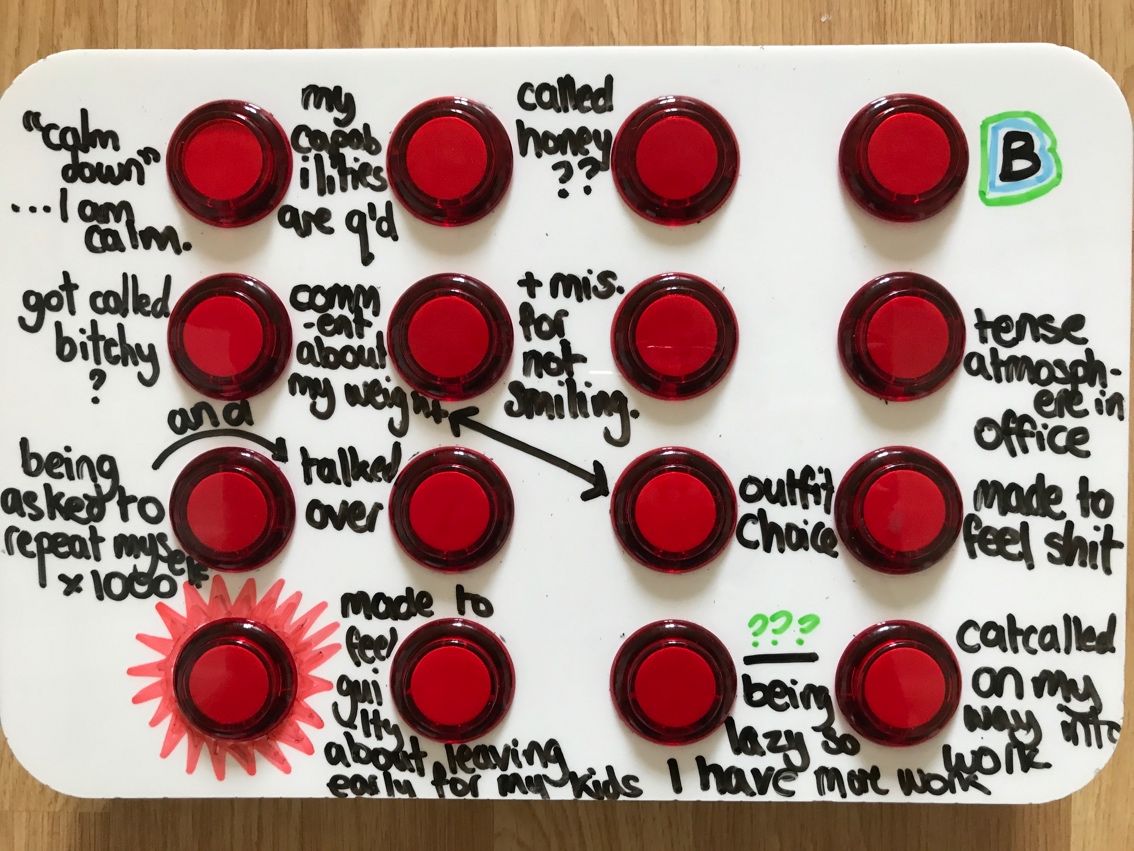 "calm
down"
...I am
calm.
my
capab
ilities
are q'd
called
honey
??
B
got called
bitchy
?
comm
-ent
about
my weight
+ mis.
for
not
smiling.
tense
atmosph-
ere in
office
and
being
asked to
repeat myself
x 1000
talked
over
outfit
choice
made to
feel shit
made to
feel
gui
lty
about leaving
early for my kids
???
being
lazy so
I have more work
catcalled
on my
way into
work